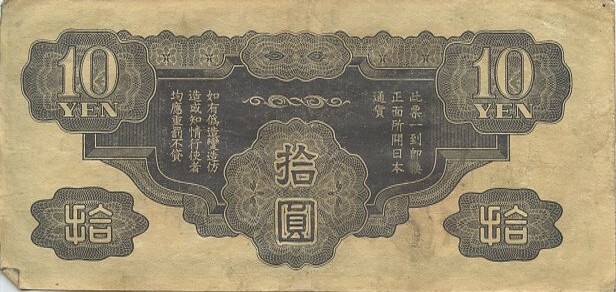 10
YEN
10
YEN
此票一到即換
正面所開日本
通貨
如有僞造變造仿
造或知情行使者
均應重罰不貸
拾
圓
拾
拾